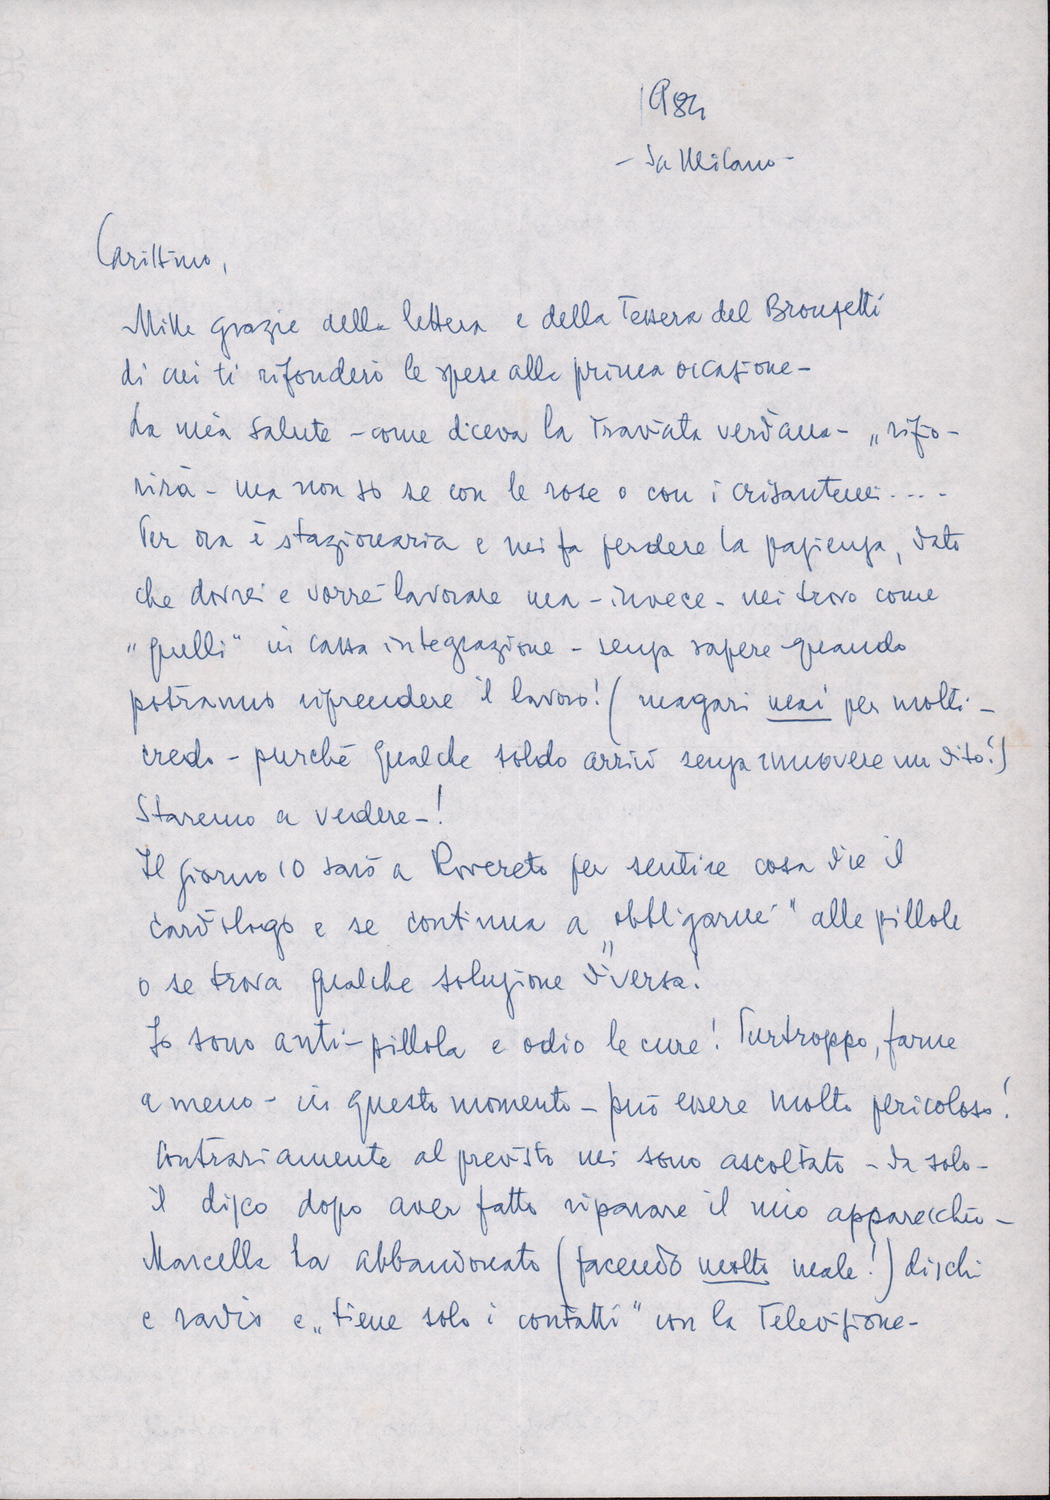 1984
- da Milano -
Carissimo,
Mille grazie della lettera e della Tessera del Bronzetti
di cui ti rifonderò le spese alla prima occasione -
La mia salute - come diceva la Traviata verdiana - „rifio-
rirà - ma non so se con le rose o con i crisantemi....
Per ora è stazionaria e mi fa perdere la pazienza, dato
che dovrei e vorrei lavorare ma - invece - mi trovo come
"quelli" in cassa integrazione - senza sapere quando
potranno riprendere il lavoro! (magari mai per molti -
credo - purché qualche soldo arrivi senza muovere un dito!)
Staremo a vedere - !
Il giorno 10 sarò a Rovereto per sentire cosa dice il
cardiologo e se continua a „obbligarmi" alle pillole
o se trova qualche soluzione diversa!
Io sono anti-pillola e odio le cure! Purtroppo, farne
a meno - in questo momento - può essere molto pericoloso!
Contrariamente al previsto mi sono ascoltato - da solo -
il disco dopo aver fatto riparare il mio apparecchio -
Marcella ha abbandonato (facendo molto male!) dischi
e radio e „tiene solo i contatti" con la Televisione -